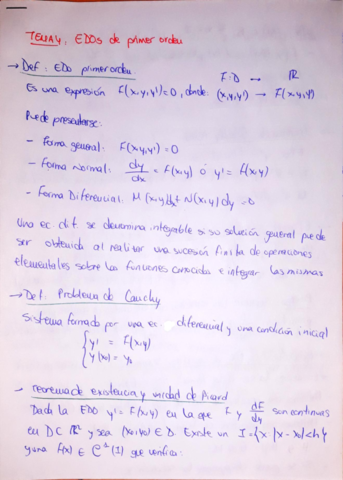 TEMA 4. EDOs de primer orden
→ Def: EDO primer orden F: D → ℝ
Es una expresión F(x,y,y')=0, donde (x,y,y') → F(x,y,y')
Puede presentarse:
- Forma general: F(x,y,y')=0
- Forma Normal: dy/dx = f(x,y) ó y' = f(x,y)
- Forma Diferencial: M(x,y)dx + N(x,y)dy = 0
Una ec. dif. se denomina integrable si su solución general puede
ser obtenida al realizar una sucesión finita de operaciones
elementales sobre las funciones conocida e integrar las mismas
→ Def: Problema de Cauchy
Sistema formado por una ec. diferencial y una condición inicial
{ y' = F(x,y)
{ y(x₀) = y₀
→ Teorema de existencia y unicidad de Picard
Dada la EDO y' = F(x,y) en la que F y dF/dy son continuas
en D⊂ℝ² y sea (x₀,y₀) ∈ D. Existe un I={x |x-x₀|<h}
y una f(x) ∈ C¹(I) que verifica: